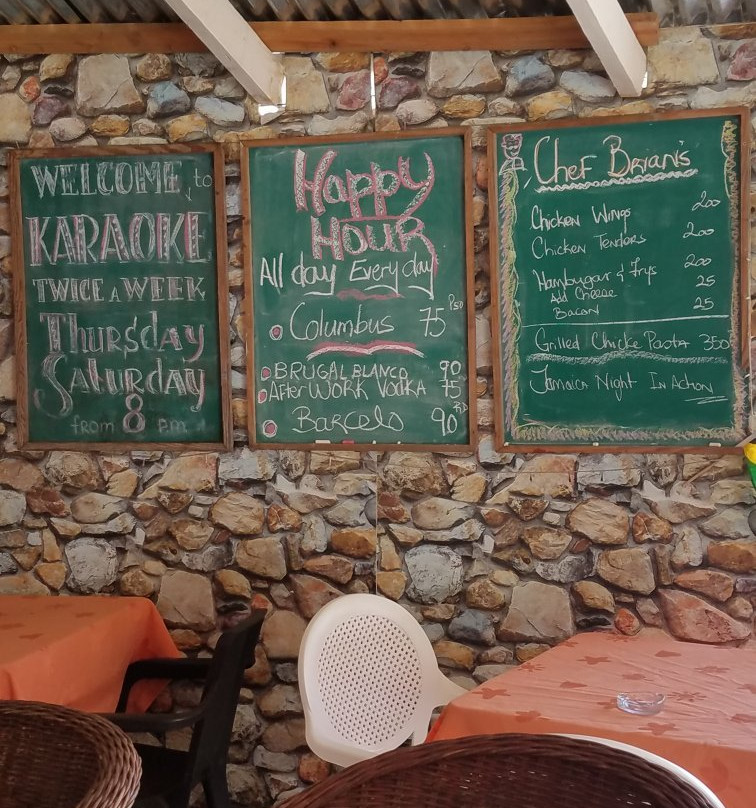 WELCOME to
KARAOKE
TWICE A WEEK
Thursday
Saturday
from 8 P.M
Happy
HOUR
All day Every day
Columbus 75 Pso
BRUGAL BLANCO 90
After WORK Vodka 75
Barcelo 90 RD
Chef Brian's
Chicken Wings 200
Chicken Tenders 200
Hambugar & Frys 200
Add Cheese 25
Bacon 25
Grilled Chicke Pasta 350
Jamaica Night In Action